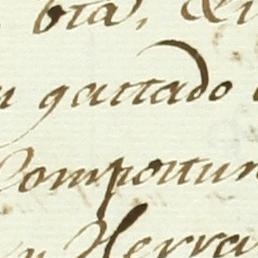 bta, &
gastado
Compostur
Herra